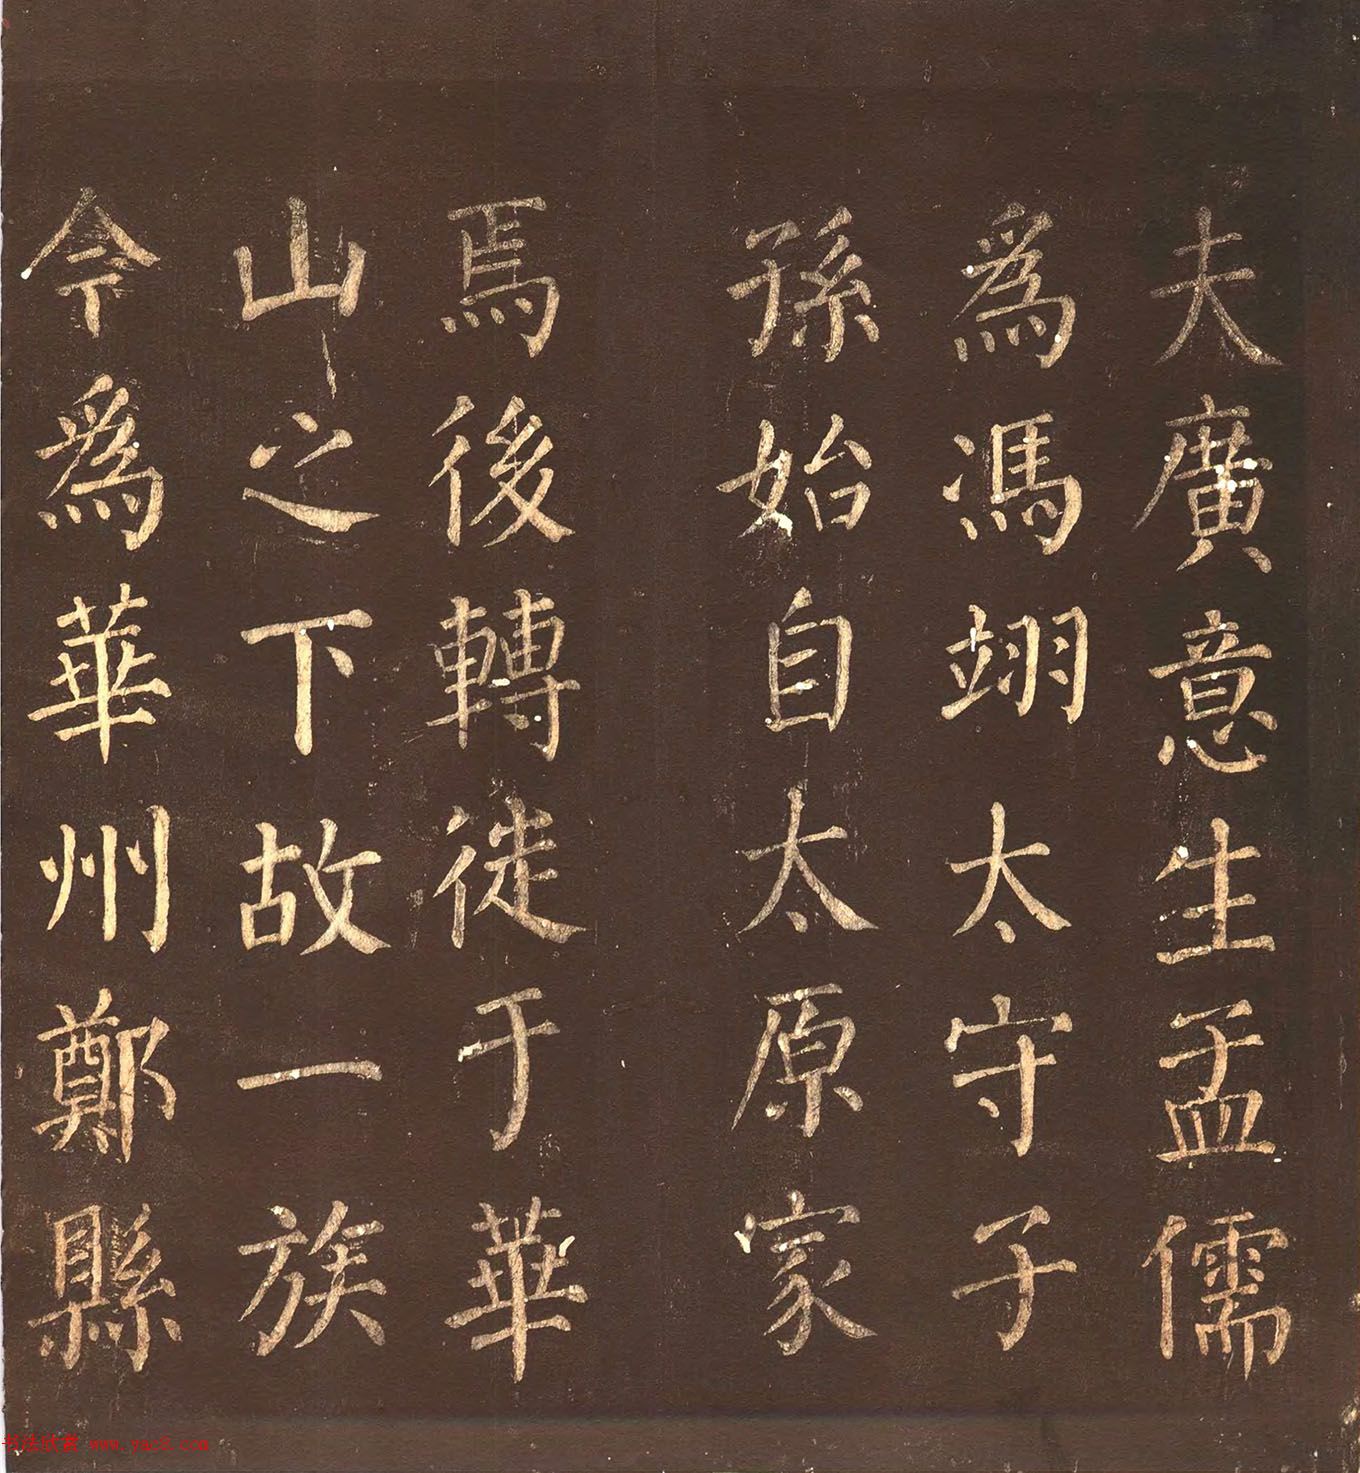 夫廣意生孟儒
爲馮翊太守子
孫始自太原家
焉後轉徙于華
山之下故一族
今爲華州鄭縣
书法欣赏 www.yac8.com